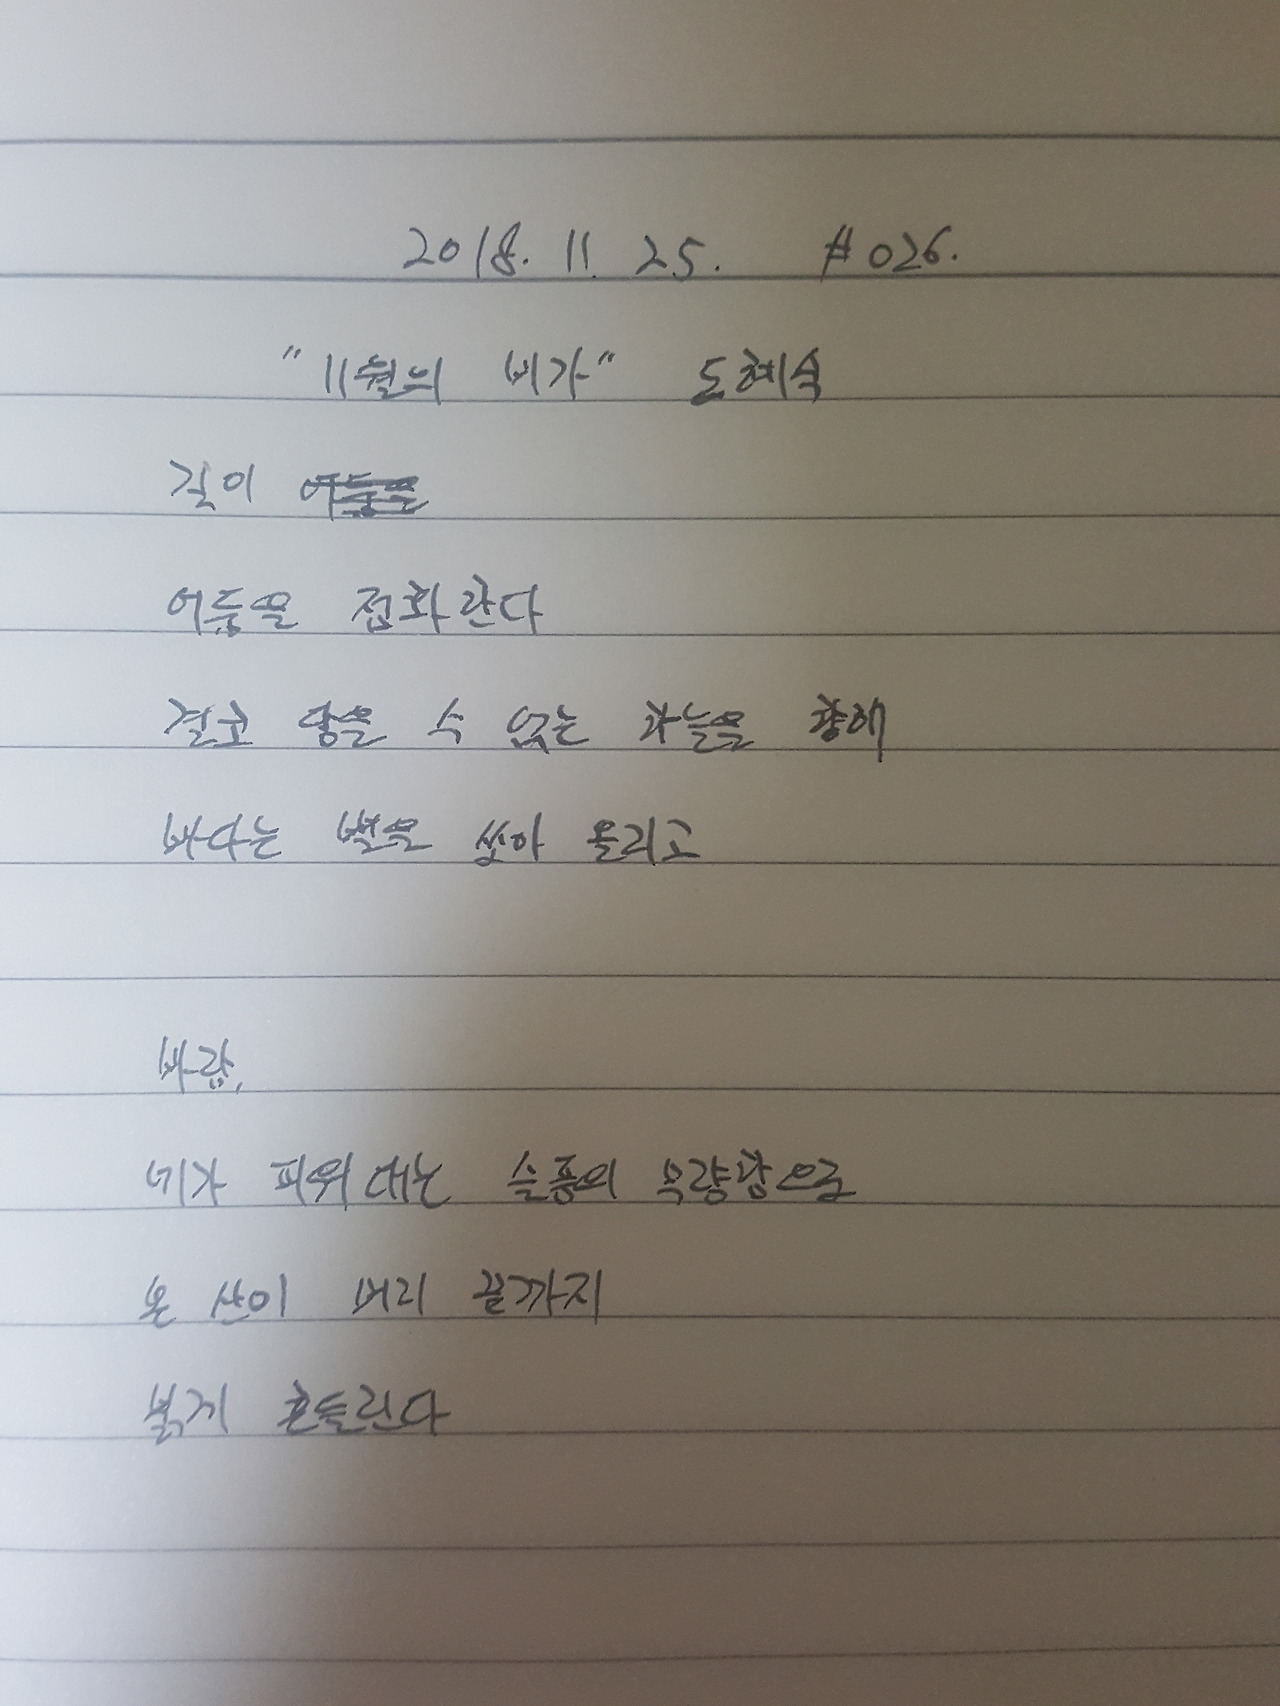 2018. 11. 25. #026.
"11월의 비가" 도혜숙
길이 어둠을
어둠을 점화한다
결코 닿을 수 없는 하늘을 향해
바다는 별을 쏘아 올리고
바람,
네가 피워대는 슬픔의 무량함으로
온 산이 머리 끝까지
붉게 흔들린다